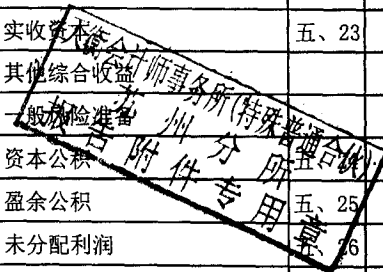 实收资本 五、23
其他综合收益
一般风险准备
资本公积
盈余公积 五、25
未分配利润 五、26
天衡会计师事务所(特殊普通合伙)
苏州分所
报告附件专用章